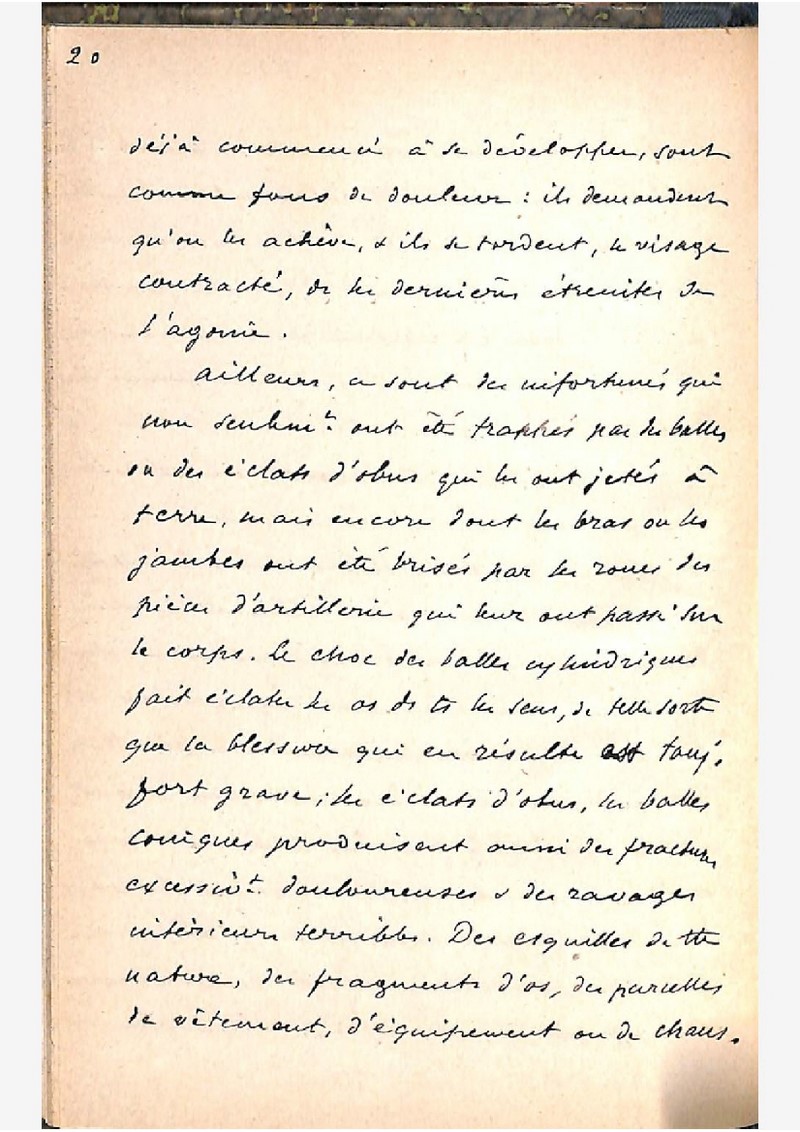 20
déjà commencé à se développer, sont
comme fous de douleur : ils demandent
qu'on les achève, & ils se tordent, le visage
contracté, ds les dernières étreintes de
l'agonie.
Ailleurs, ce sont des infortunés qui
non seulemt. ont été frappés par des balles
ou des éclats d'obus qui les ont jetés à
terre, mais encore dont les bras ou les
jambes ont été brisés par les roues des
pièces d'artillerie qui leur ont passé sur
le corps. Le choc des balles cylindriques
fait éclater les os ds ts les sens, de telle sorte
que la blessure qui en résulte est touj.
fort grave ; les éclats d'obus, les balles
coniques produisent aussi des fractures
excessivt. douloureuses & des ravages
intérieurs terribles. Des esquilles de tte
nature, des fragments d'os, des parcelles
de vêtement, d'équipement ou de chaus.